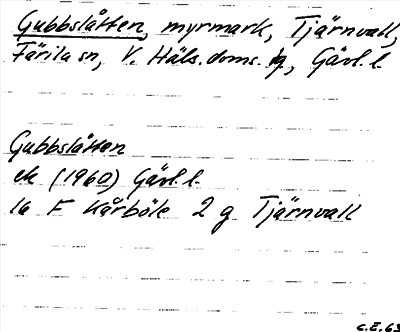 Gubbslåtten, myrmark, Tjärnvall,
Färila sn, V. Häls. doms. , Gävl. l.
Gubbslåtten
ek (1960) Gävl. l.
16 F Kårböle 2 g Tjärnvall
C.E.63